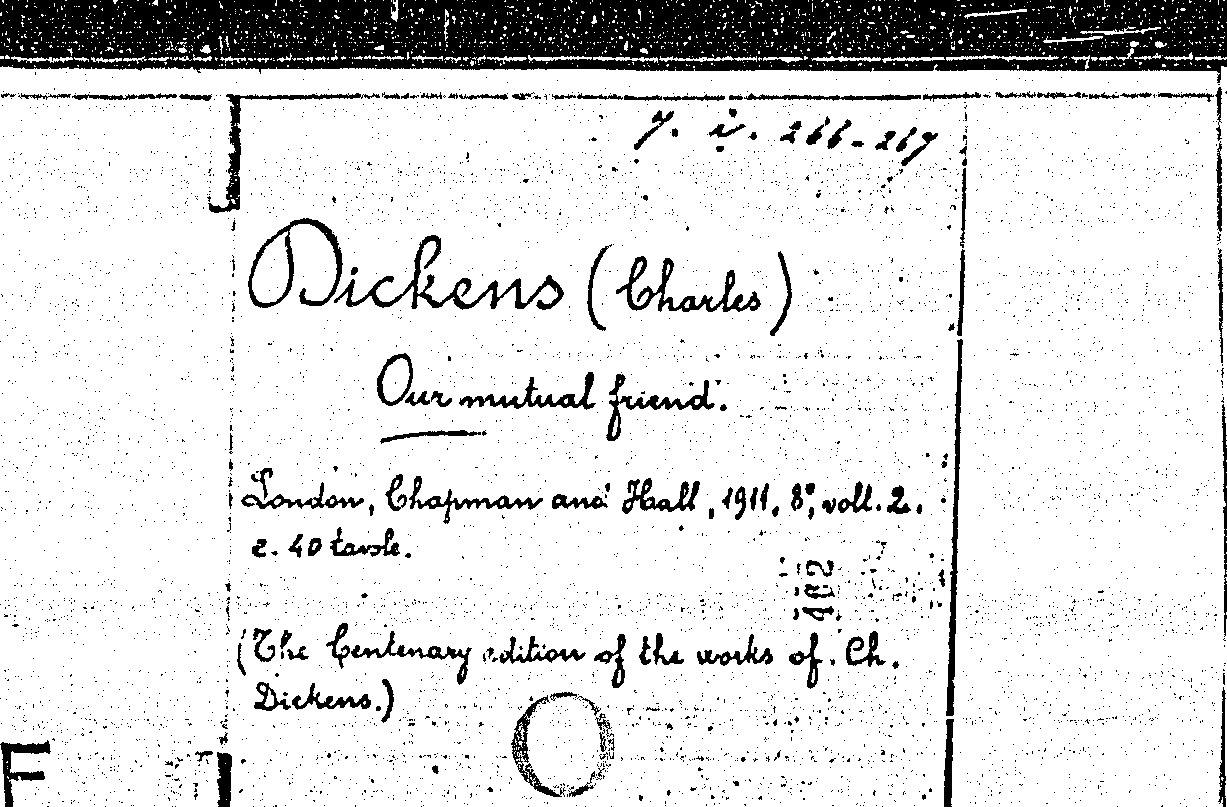 y. i. 266-267
Dickens (Charles)
Our mutual friend.
London, Chapman and Hall, 1911, 8°, voll. 2.
c. 40 tavole.
402
(The Centenary edition of the works of. Ch.
Dickens.)
F